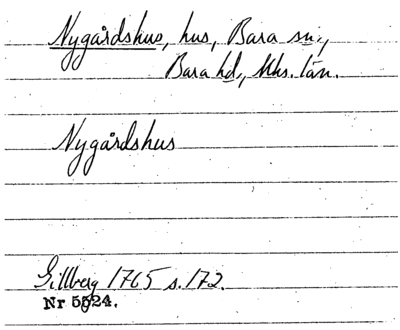 Nygårdshus, hus, Bara sn.,
Bara hd., Mhs. län.
Nygårdshus
Gillberg 1765 s. 172.
Nr 5524.